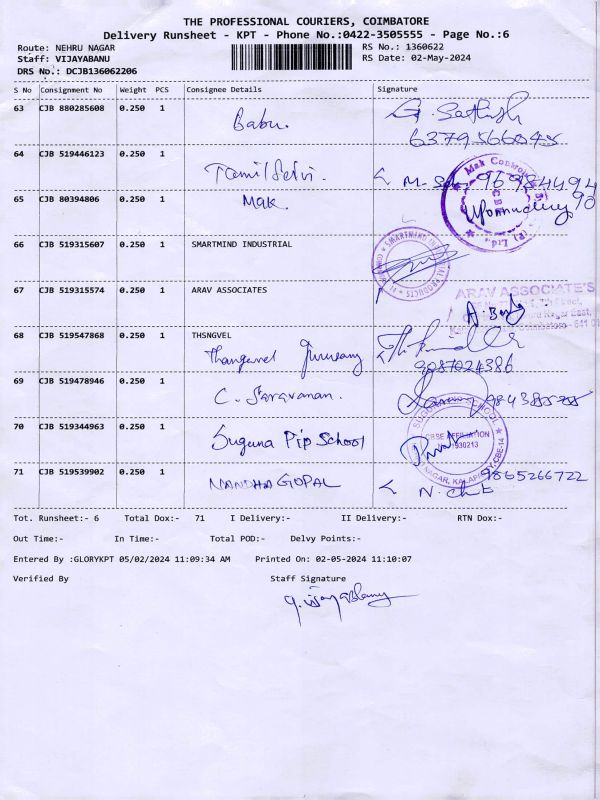 THE PROFESSIONAL COURIERS, COIMBATORE
Delivery Runsheet - KPT - Phone No.:0422-3505555 - Page No.:6
Route: NEHRU NAGAR
RS No.: 1360622
Staff: VIJAYABANU
RS Date: 02-May-2024
DRS No.: DCJB136062206
S No Consignment No Weight PCS Consignee Details Signature
63 CJB 880285608 0.250 1
Babu. G. Sathish
6379566045
64 CJB 519446123 0.250 1
Tamil Selvi.
65 CJB 80394806 0.250 1
Mak.
66 CJB 519315607 0.250 1 SMARTMIND INDUSTRIAL
67 CJB 519315574 0.250 1 ARAV ASSOCIATES
ARAV ASSOCIATE'S
68 CJB 519547868 0.250 1 THSNGVEL
Thangavel
9087024386
69 CJB 519478946 0.250 1
C. Saravanan.
70 CJB 519344963 0.250 1
Suguna Pip School
CBSE AFFILIATION
930213
71 CJB 519539902 0.250 1
NANDHA GOPAL
9865266722
Tot. Runsheet:- 6 Total Dox:- 71 I Delivery:- II Delivery:- RTN Dox:-
Out Time:- In Time:- Total POD:- Delvy Points:-
Entered By :GLORYKPT 05/02/2024 11:09:34 AM Printed On: 02-05-2024 11:10:07
Verified By Staff Signature